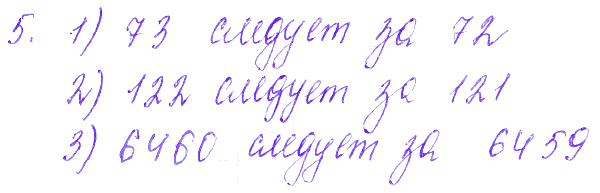 5. 1) 73 следует за 72
2) 122 следует за 121
3) 6460 следует за 6459